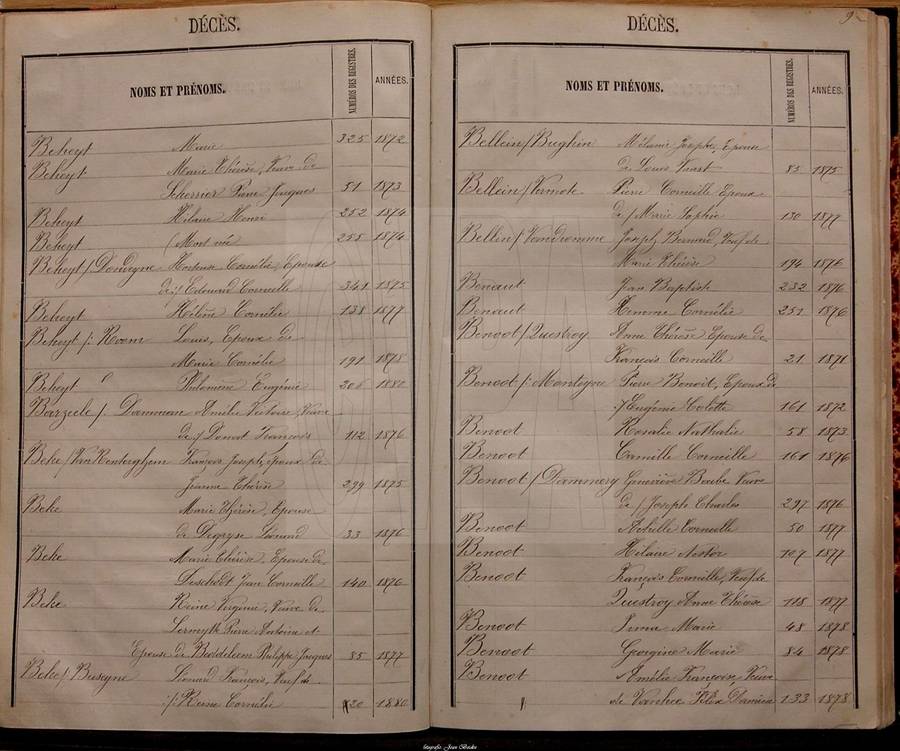 DÉCÈS.
NOMS ET PRÉNOMS. NUMÉROS DES REGISTRES. ANNÉES.
Beheyt Marie 325 1872
Beheyt Marie Thérèse, Veuve de
Scherrier Pierre Jacques 51 1873
Beheyt Hilaire Henri 252 1874
Beheyt (Mort né 258 1874
Beheyt / Hortense Cornélie, Epouse
de :/ Edouard Corneille 341 1875
Beheyt Hélène Cornélie 138 1877
Beheyt /: Louis, Epoux de
Marie Cornélie 191 1878
Beheyt Philomène Eugénie 206 1880
/ Dammane Amélie Victoire, Veuve
de :/ Donat François 112 1876
Beke / Van Renterghem François Joseph, époux de
Jeanne Thérèse 299 1875
Beke Marie Thérèse, Epouse
de Degryse Léonard 33 1876
Beke Marie Thérèse, Epouse de
Jean Corneille 140 1876
Beke Reine Virginie, Veuve de
Lermyte Pierre Antoine et
Epouse de Beddeleem Philippe Jacques 85 1877
Beke / Buseyne Léonard François, Veuf de
:/ Reine Cornélie 20 1880
DÉCÈS. 9
NOMS ET PRÉNOMS. NUMÉROS DES REGISTRES. ANNÉES.
Bellein / Bughin Mélanie Josephe, Epouse
de Louis 85 1875
Bellein / Vermote Pierre Corneille Epoux
de / Marie Sophie 130 1877
Bellin / Vandromme Joseph Bernard, Veuf de
Marie Thérèse 194 1876
Benaut Jean Baptiste 232 1876
Benaut Femme Cornélie 251 1876
Benoot / Questroy Anne Thérèse Epouse de
François Corneille 21 1871
Benoot /: Montegne Pierre Benoit, Epoux de
:/ Eugénie Colette 161 1872
Benoot Rosalie Nathalie 58 1873
Benoot Camille Corneille 161 1876
Benoot / Dammery Geneviève Barbe Veuve
de / Joseph Charles 297 1876
Benoot Achille Corneille 50 1877
Benoot Hilaire Nestor 107 1877
Benoot François Corneille, Veuf de
Questroy Anne Thérèse 118 1877
Benoot Irma Marie 48 1878
Benoot Georgine Marie 84 1878
Benoot Amélie Françoise, Veuve
de Vanhee Félix Damien 133 1878
fotografie Jean Beeke